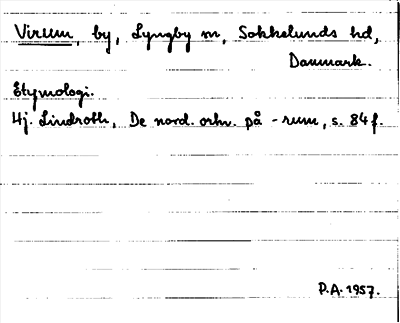 Virum, by, Lyngby sn, Sokkelunds hd,
Danmark.
Etymologi.
Hj. Lindroth, De nord. ortn. på -rum, s. 84 f.
P.A. 1957.